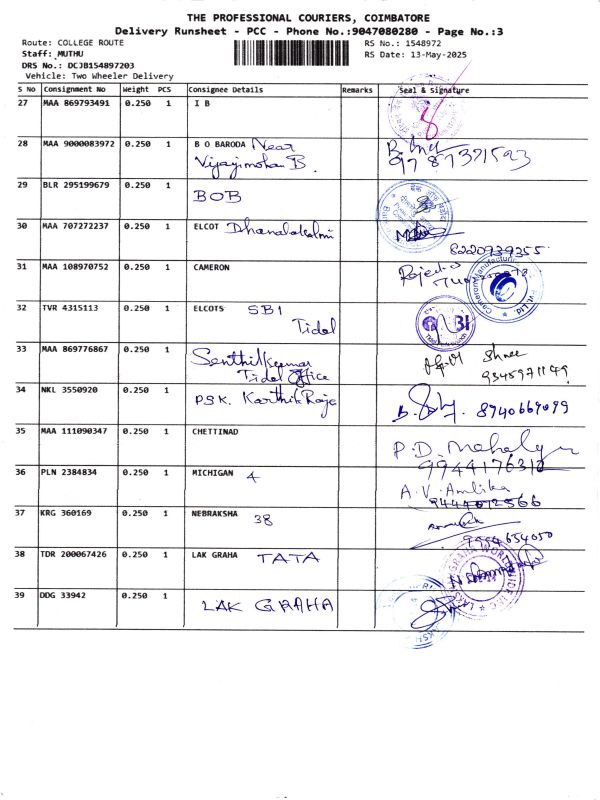 THE PROFESSIONAL COURIERS, COIMBATORE
Delivery Runsheet - PCC - Phone No.:9047080280 - Page No.:3
Route: COLLEGE ROUTE RS No.: 1548972
Staff: MUTHU RS Date: 13-May-2025
DRS No.: DCJB154897203
Vehicle: Two Wheeler Delivery
S No Consignment No Weight PCS Consignee Details Remarks Seal & Signature
27 MAA 869793491 0.250 1 I B
28 MAA 9000083972 0.250 1 B O BARODA Near
29 BLR 295199679 0.250 1 BOB
30 MAA 707272237 0.250 1 ELCOT
8220939355
31 MAA 108970752 0.250 1 CAMERON
32 TVR 4315113 0.250 1 ELCOTS SBI
Tidal
33 MAA 869776867 0.250 1 Senthilkumar
Tidal Office
9345971149
34 NKL 3550920 0.250 1 P.S.K. Karthik Raja 8940669099
35 MAA 111090347 0.250 1 CHETTINAD P.D.
36 PLN 2384834 0.250 1 MICHIGAN 4 A.V.
37 KRG 360169 0.250 1 NEBRAKSHA 38
38 TDR 200067426 0.250 1 LAK GRAHA TATA
39 DDG 33942 0.250 1 LAK GRAHA